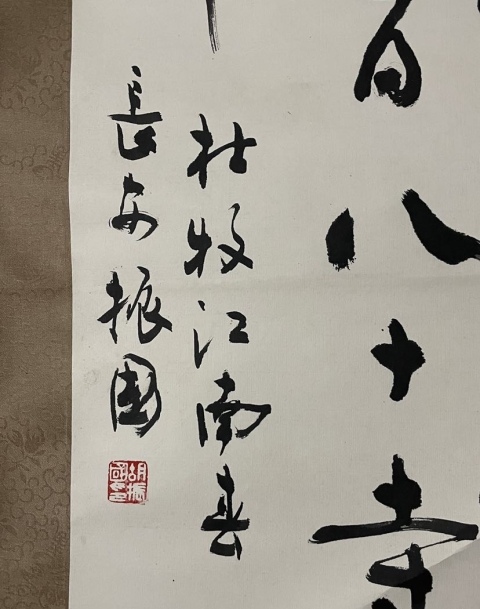 百八十寺
杜牧江南春
長安振國
胡振國印